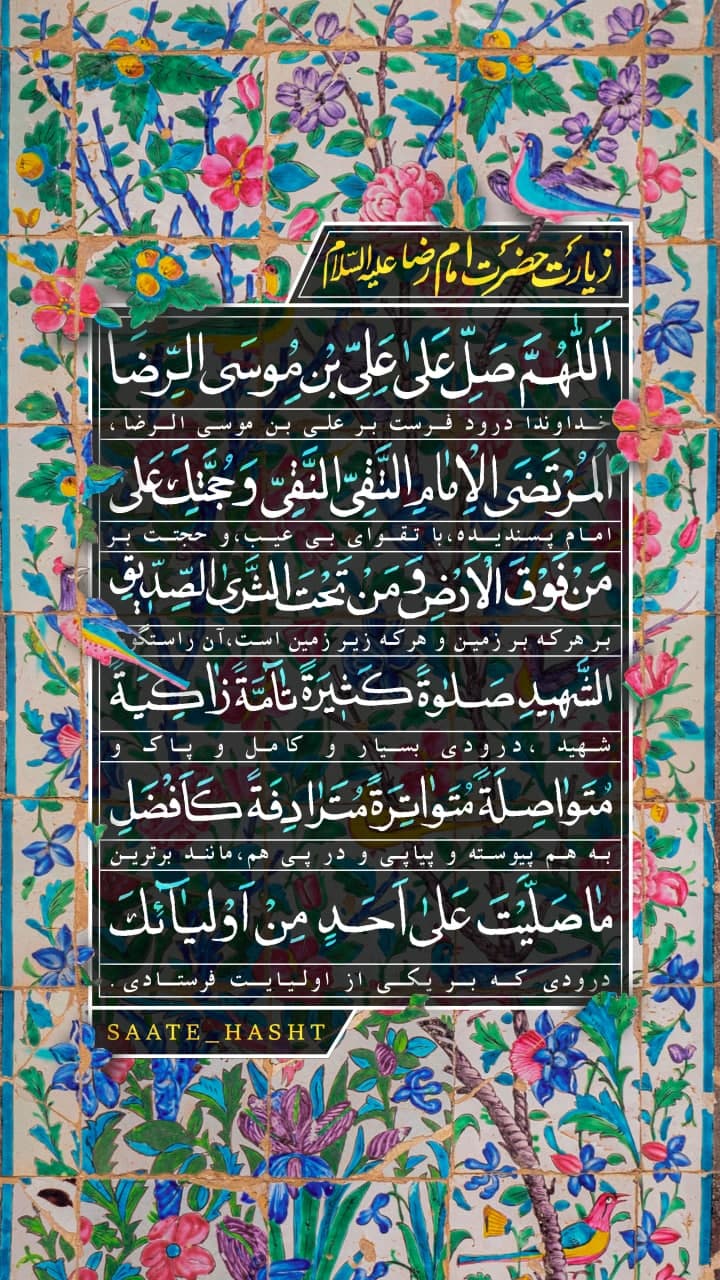 زیارت حضرت امام رضا علیه السّلام
اَللّٰهُمَّ صَلِّ عَلىٰ عَلِيِّ بْنِ مُوسَى الرِّضَا
خداوندا درود فرست بر علی بن موسی الرضا،
الْمُرْتَضَى الْاِمٰامِ التَّقِيِّ النَّقِيِّ وَحُجَّتِكَ عَلىٰ
امام پسندیده،با تقوای بی عیب،و حجتت بر
مَنْ فَوْقَ الْاَرْضِ وَ مَنْ تَحْتَ الثَّرىٰ الصِّدّيقِ
بر هرکه بر زمین و هرکه زیر زمین است،آن راستگو
الشَّهيدِ صَلوٰةً كَثيرَةً تٰآمَّةً زٰاكِيَةً
شهید ،درودی بسیار و کامل و پاک و
مُتَوٰاصِلَةً مُتَوٰاتِرَةً مُتَرٰادِفَةً كَاَفْضَلِ
به هم پیوسته و پیاپی و در پی هم،مانند برترین
مٰا صَلَّيْتَ عَلىٰ اَحَدٍ مِنْ اَوْلِيٰآئِكَ
درودی که بر یکی از اولیایت فرستادی.
SAATE_HASHT